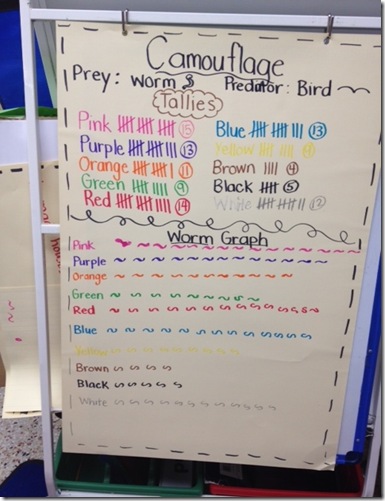 Camouflage
Prey: Worm Predator: Bird
Tallies
Pink 15 Blue 13
Purple 13 Yellow
Orange 11 Brown 4
Green 9 Black 5
Red 14 White 12
Worm Graph
Pink
Purple
Orange
Green
Red
Blue
Yellow
Brown
Black
White